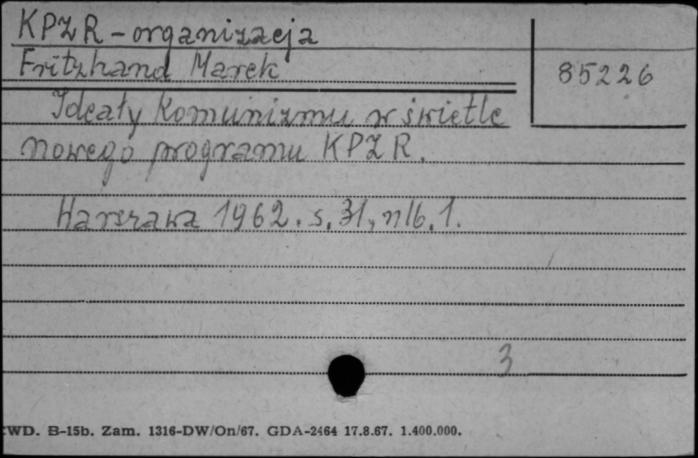 KPZR - organizacja
Fritzhand Marek
85226
Ideały Komunizmu w świetle
nowego programu KPZR.
Warszawa 1962. s. 31, nlb. 1.
3
WD. B-15b. Zam. 1316-DW/On/67. GDA-2464 17.8.67. 1.400.000.